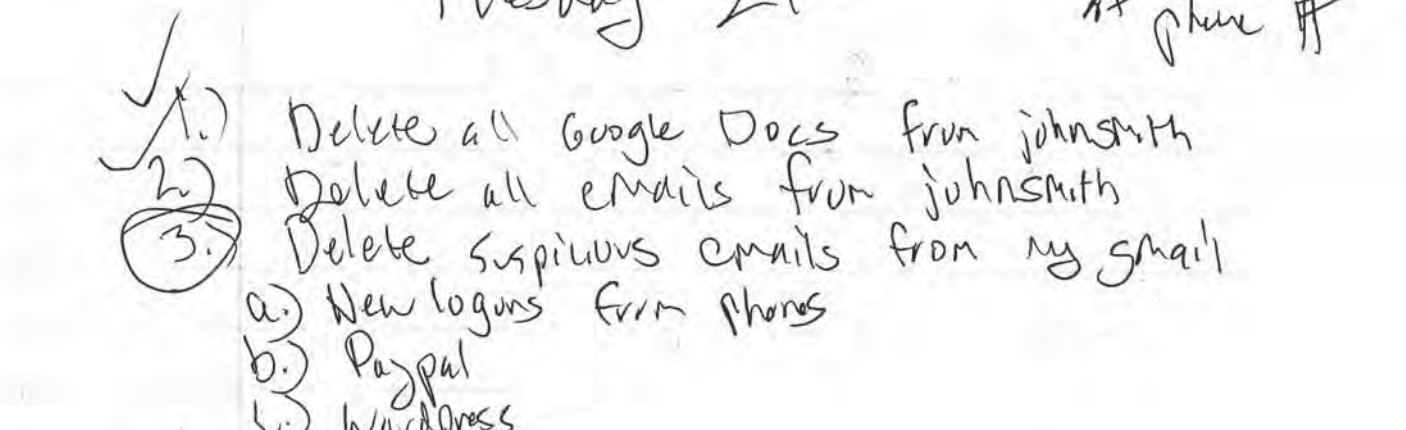 Tuesday
phone #
1.) Delete all Google Docs from johnsmith
2.) Delete all emails from johnsmith
3. Delete suspicious emails from my gmail
a.) New logons from phones
b.) Paypal
c.) WordPress